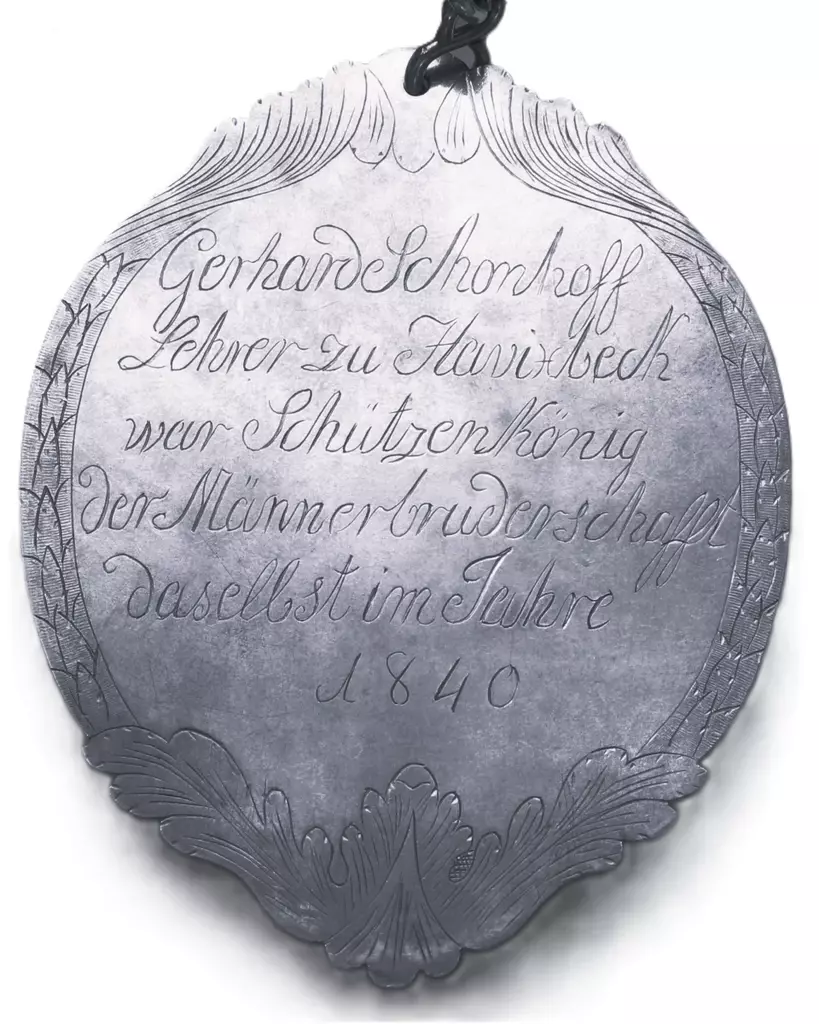 Gerhard Schonhoff
Lehrer zu Havixbeck
war Schützenkönig
der Männerbruderschafft
daselbst im Jahre
1840